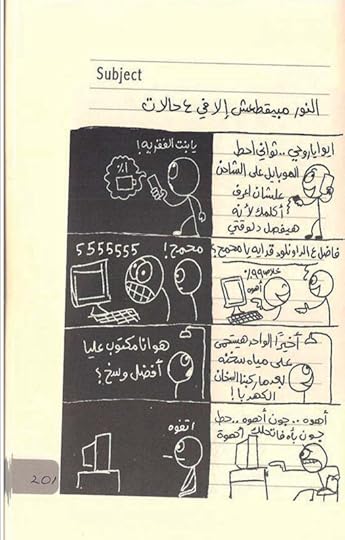 Subject
النور مبيقطعش إلا في ٤ حالات
ايوا ياروحي .. ثواني احط
الموبايل على الشاحن
علشان اعرف
أكلمك لأنه
هيفصل دلوقتي
يا بنت الفقرية!
١٪
فاضل ع الداونلود قد ايه يا محمح؟
خلاص ٩٩٪
أهوه
محمح!
5555555
أخيرًا الواحد هيستحمى
على مياه سخنه
بعد ما ركبنا السخان
الكهربا!
هو انا مكتوب عليا
أفضل وسخ؟
أهوه .. جون أهوه .. حط
جون يا أه
أهوة
اتفوه
201